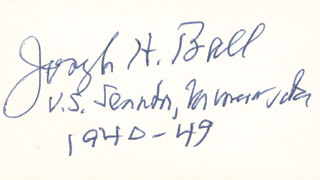 Joseph H. Ball
U.S. Senator, Minnesota
1940-49